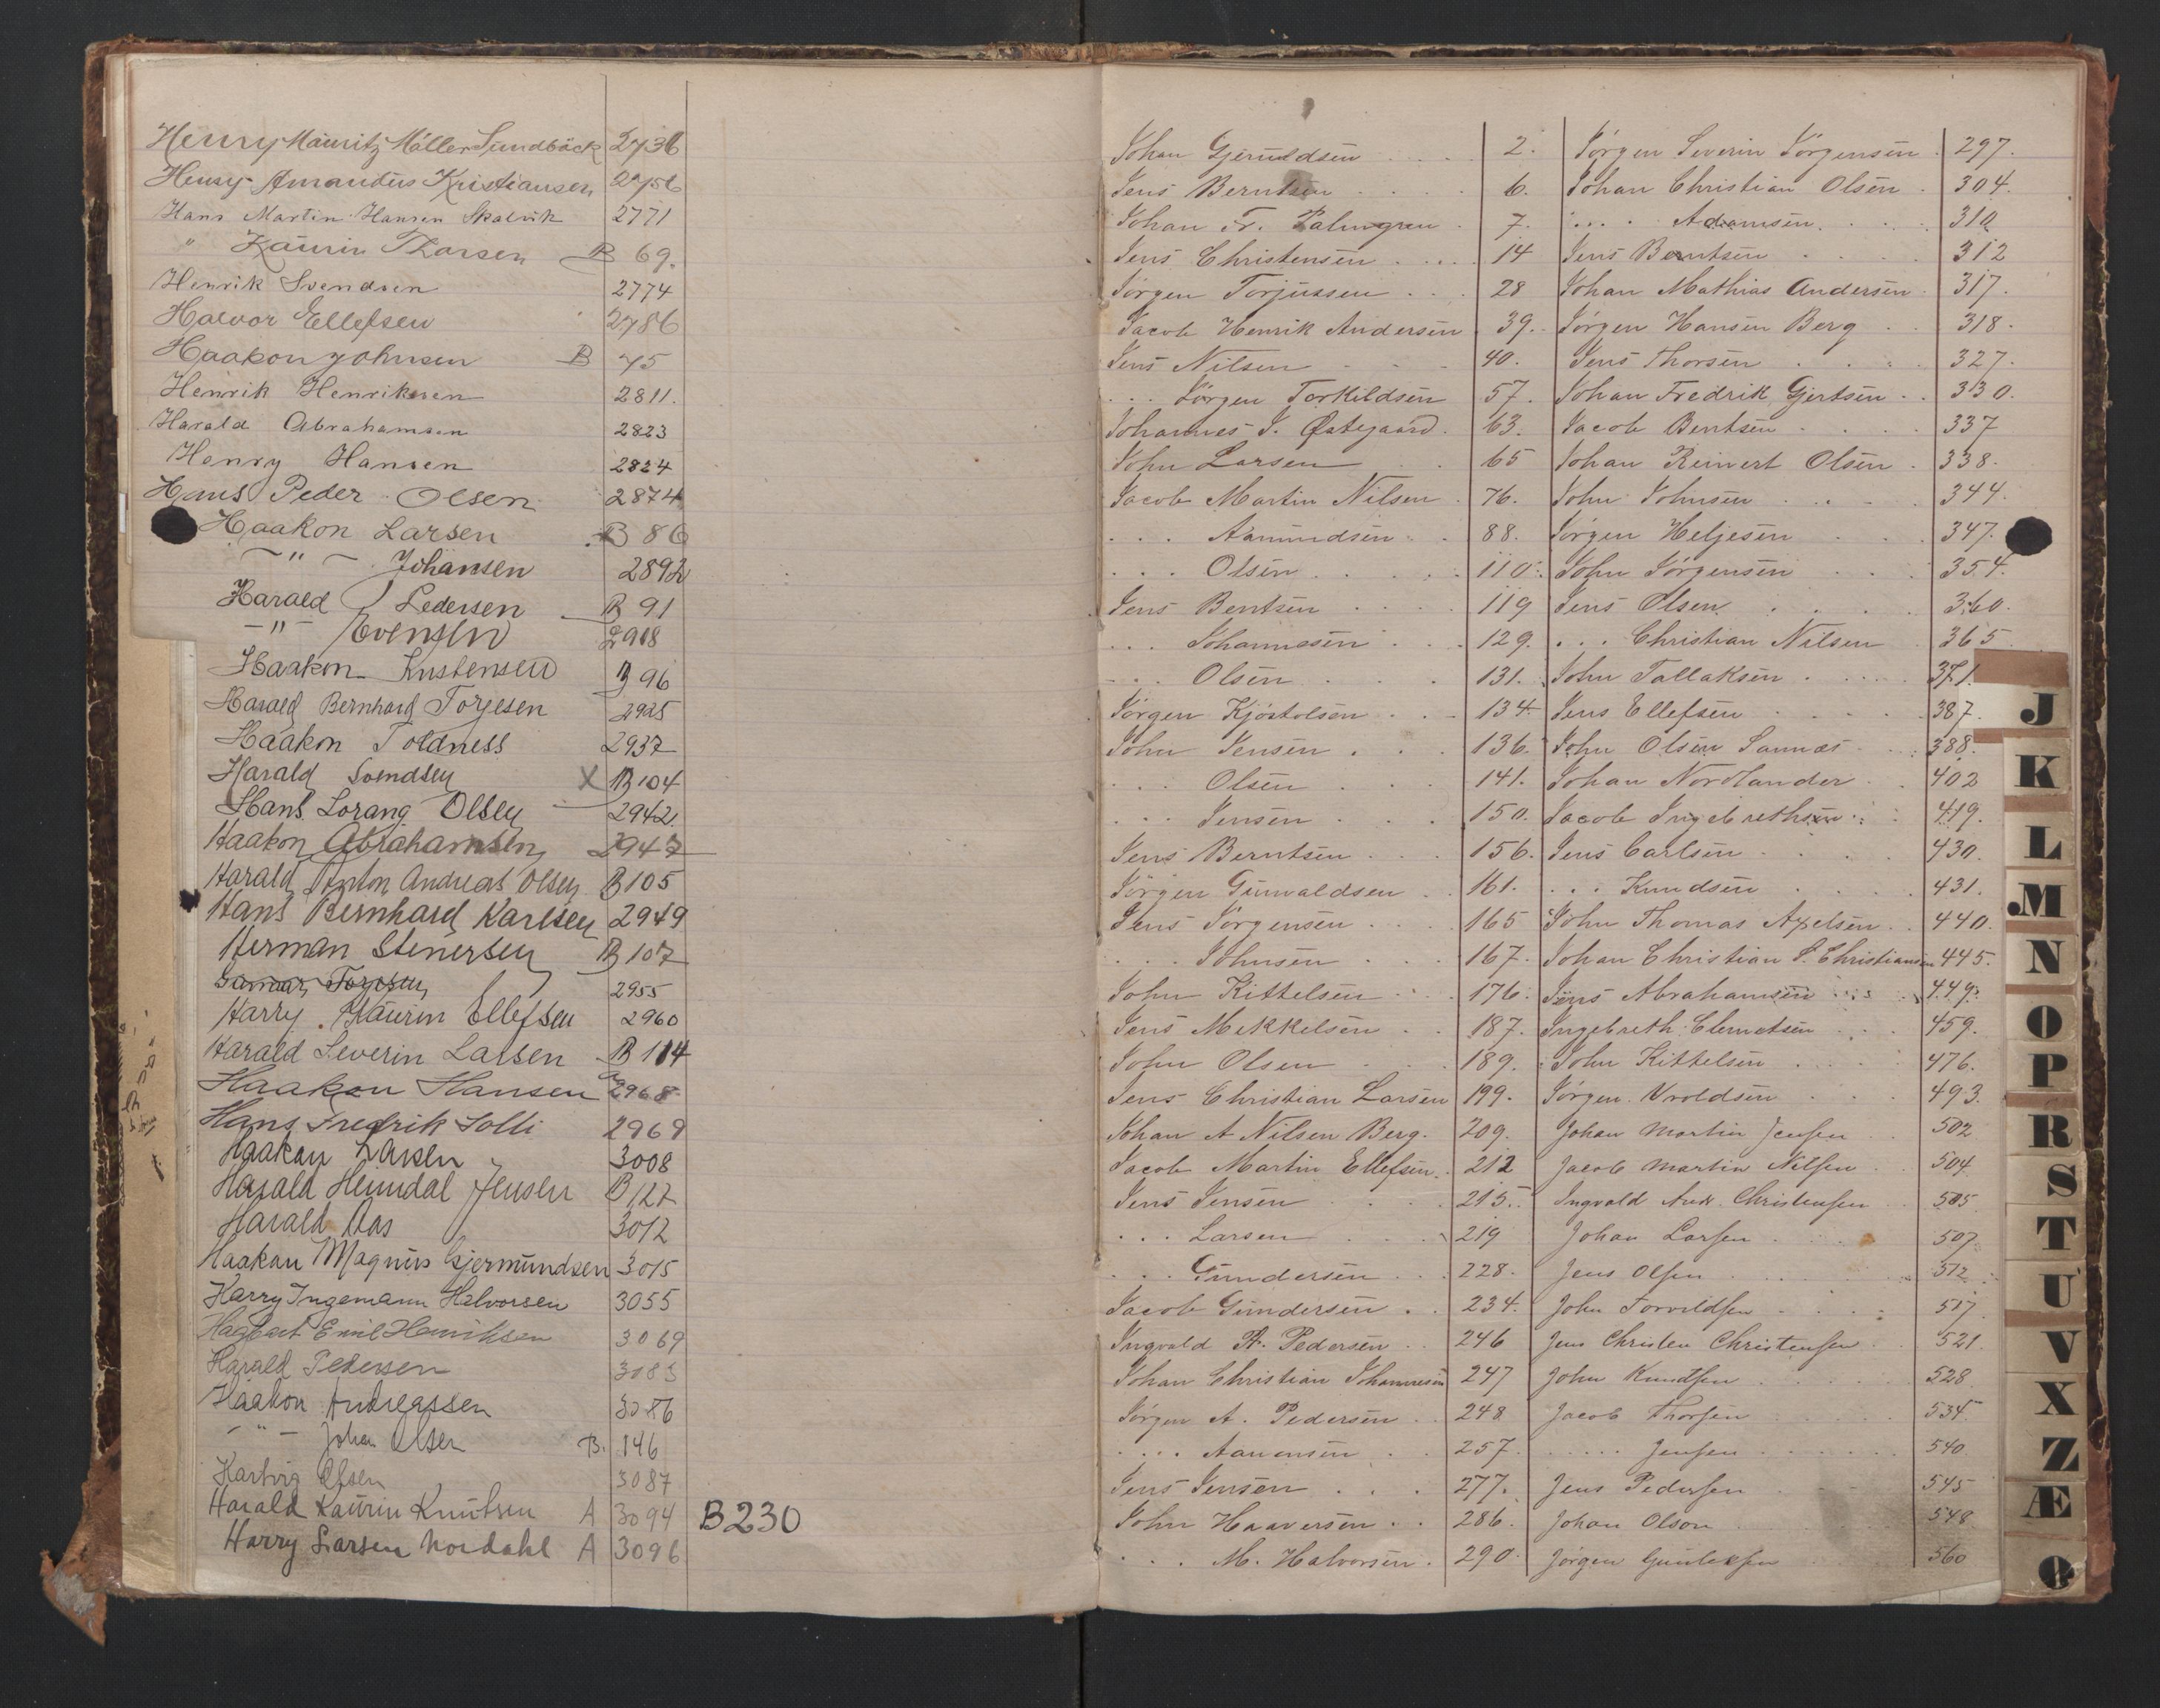 Henry Mauritz Möller Sundbäck 2736
Henry Amandus Kristiansen 2756
Hans Martin Hansen 2771
" Kaurin Tharsen B 69.
Henrik Svendsen 2774
Halvor Ellefsen 2786
Haakon Johnsen B 75
Henrik Henriksen 2811.
Harald Abrahamsen 2823
Henry Hansen 2824
Hans Peder Olsen 2874
Haakon Larsen B 86
-"- Johansen 2892
Harald Pedersen B 91
-"- Evensen 2908
Haakon Kristensen B 96
Harald Bernhard Torjesen 2925
Haakon Toldness 2937
Harald Svendsen X B 104
Hans Lorang Olsen 2942.
Haakon Abrahamsen 2947
Harald Anton Andreas Olsen B 105
Hans Bernhard Karlsen 2949
Herman Stenersen B 107
Gunnar Torjesen 2955
Harry Kaurin Ellefsen 2960
Harald Severin Larsen B 114
Haakon Hansen 2968
Hans Fredrik Solli 2969
Haakan Larsen 3008
Harald Heimdal Jensen B 127
Harald Aas 3012
Haakan Magnus Gjermundsen 3015
Harry Ingemann Halvorsen 3055
Hagbart Emil Henriksen 3069
Harald Pedersen 3083
Haakon Andreassen 3086
-"- Johan Olsen B. 146
Hartvig Olsen 3087
Harald Kaurin Knutsen A 3094 B230
Harry Larsen Nordahl A 3096
Johan Gjeruldsen 2.
Jens Berntsen 6.
Johan Fr. Palmgren 7.
Jens Christensen 14
Jörgen Torjussen 28
Jacob Henrik Andersen 39.
Jens Nilsen 40.
... Jörgen Torkildsen 57.
Johannes J. Østegaard 63.
John Larsen 65
Jacob Martin Nilsen 76.
... Aamundsen 88.
... Olsen 110.
Jens Bentsen 119
... Johannesen 129.
... Olsen 131.
Jörgen Kjöstolsen 134
John Jensen 136.
... Olsen 141.
... Jensen 150.
Jens Berntsen 156.
Jörgen Gunvaldsen 161.
Jens Jörgensen 165
... Johnsen 167.
John Kittelsen 176.
Jens Mikkelsen 187.
John Olsen 189.
Jens Christian Larsen 199.
Johan A Nilsen Berg. 209.
Jacob Martin Ellefsen 212
Jens Jensen 215.
... Larsen 219
... Gundersen 228.
Jacob Gundersen 234.
Ingvald A. Pedersen 246
Johan Christian Johannesen 247
Jörgen A. Pedersen 248
.... Aanensen 257.
Jens Jensen 277.
John Haaversen 286.
... M. Halvorsen 290.
Jörgen Severin Jörgensen 297.
Johan Christian Olsen 304.
.... Adamsen 310
Jens Berntsen 312
Johan Mathias Andersen 317.
Jörgen Hansen Berg 318.
Jens Thorsen 327.
Johan Fredrik Gjertsen 330.
Jacob Bentsen 337
Johan Reinert Olsen 338.
John Johnsen 344.
Jörgen Heljesen 347.
John Jörgensen 354.
Jens Olsen 360.
... Christian Nilsen 365
John Tallaksen 371.
Jens Ellefsen 387.
John Olsen Sannæs 388.
Johan Nordlander 402
Jacob Ingebrethsen 419.
Jens Carlsen 430.
... Knudsen 431.
John Thomas Axelsen 440.
Johan Christian S. Christiansen 445.
Jens Abrahamsen 449.
Ingebreth Clemetsen 459.
John Kittelsen 476.
Jörgen Vroldsen 493.
Johan Martin Jensen 502
Jacob Martin Nilsen 504
Ingvald Andr. Christensen 505
Johan Larsen 507
Jens Olsen 512
John Torvildsen 517
Jens Christen Christensen 521
John Knudsen 528
Jacob Thorsen 534.
..... Jensen 540
Jens Pedersen 545
Johan Olson 548
Jörgen Gunleksen 560
J
K
L
M
N
O
P
R
S
T
U
V
X
Z
Æ
Ø